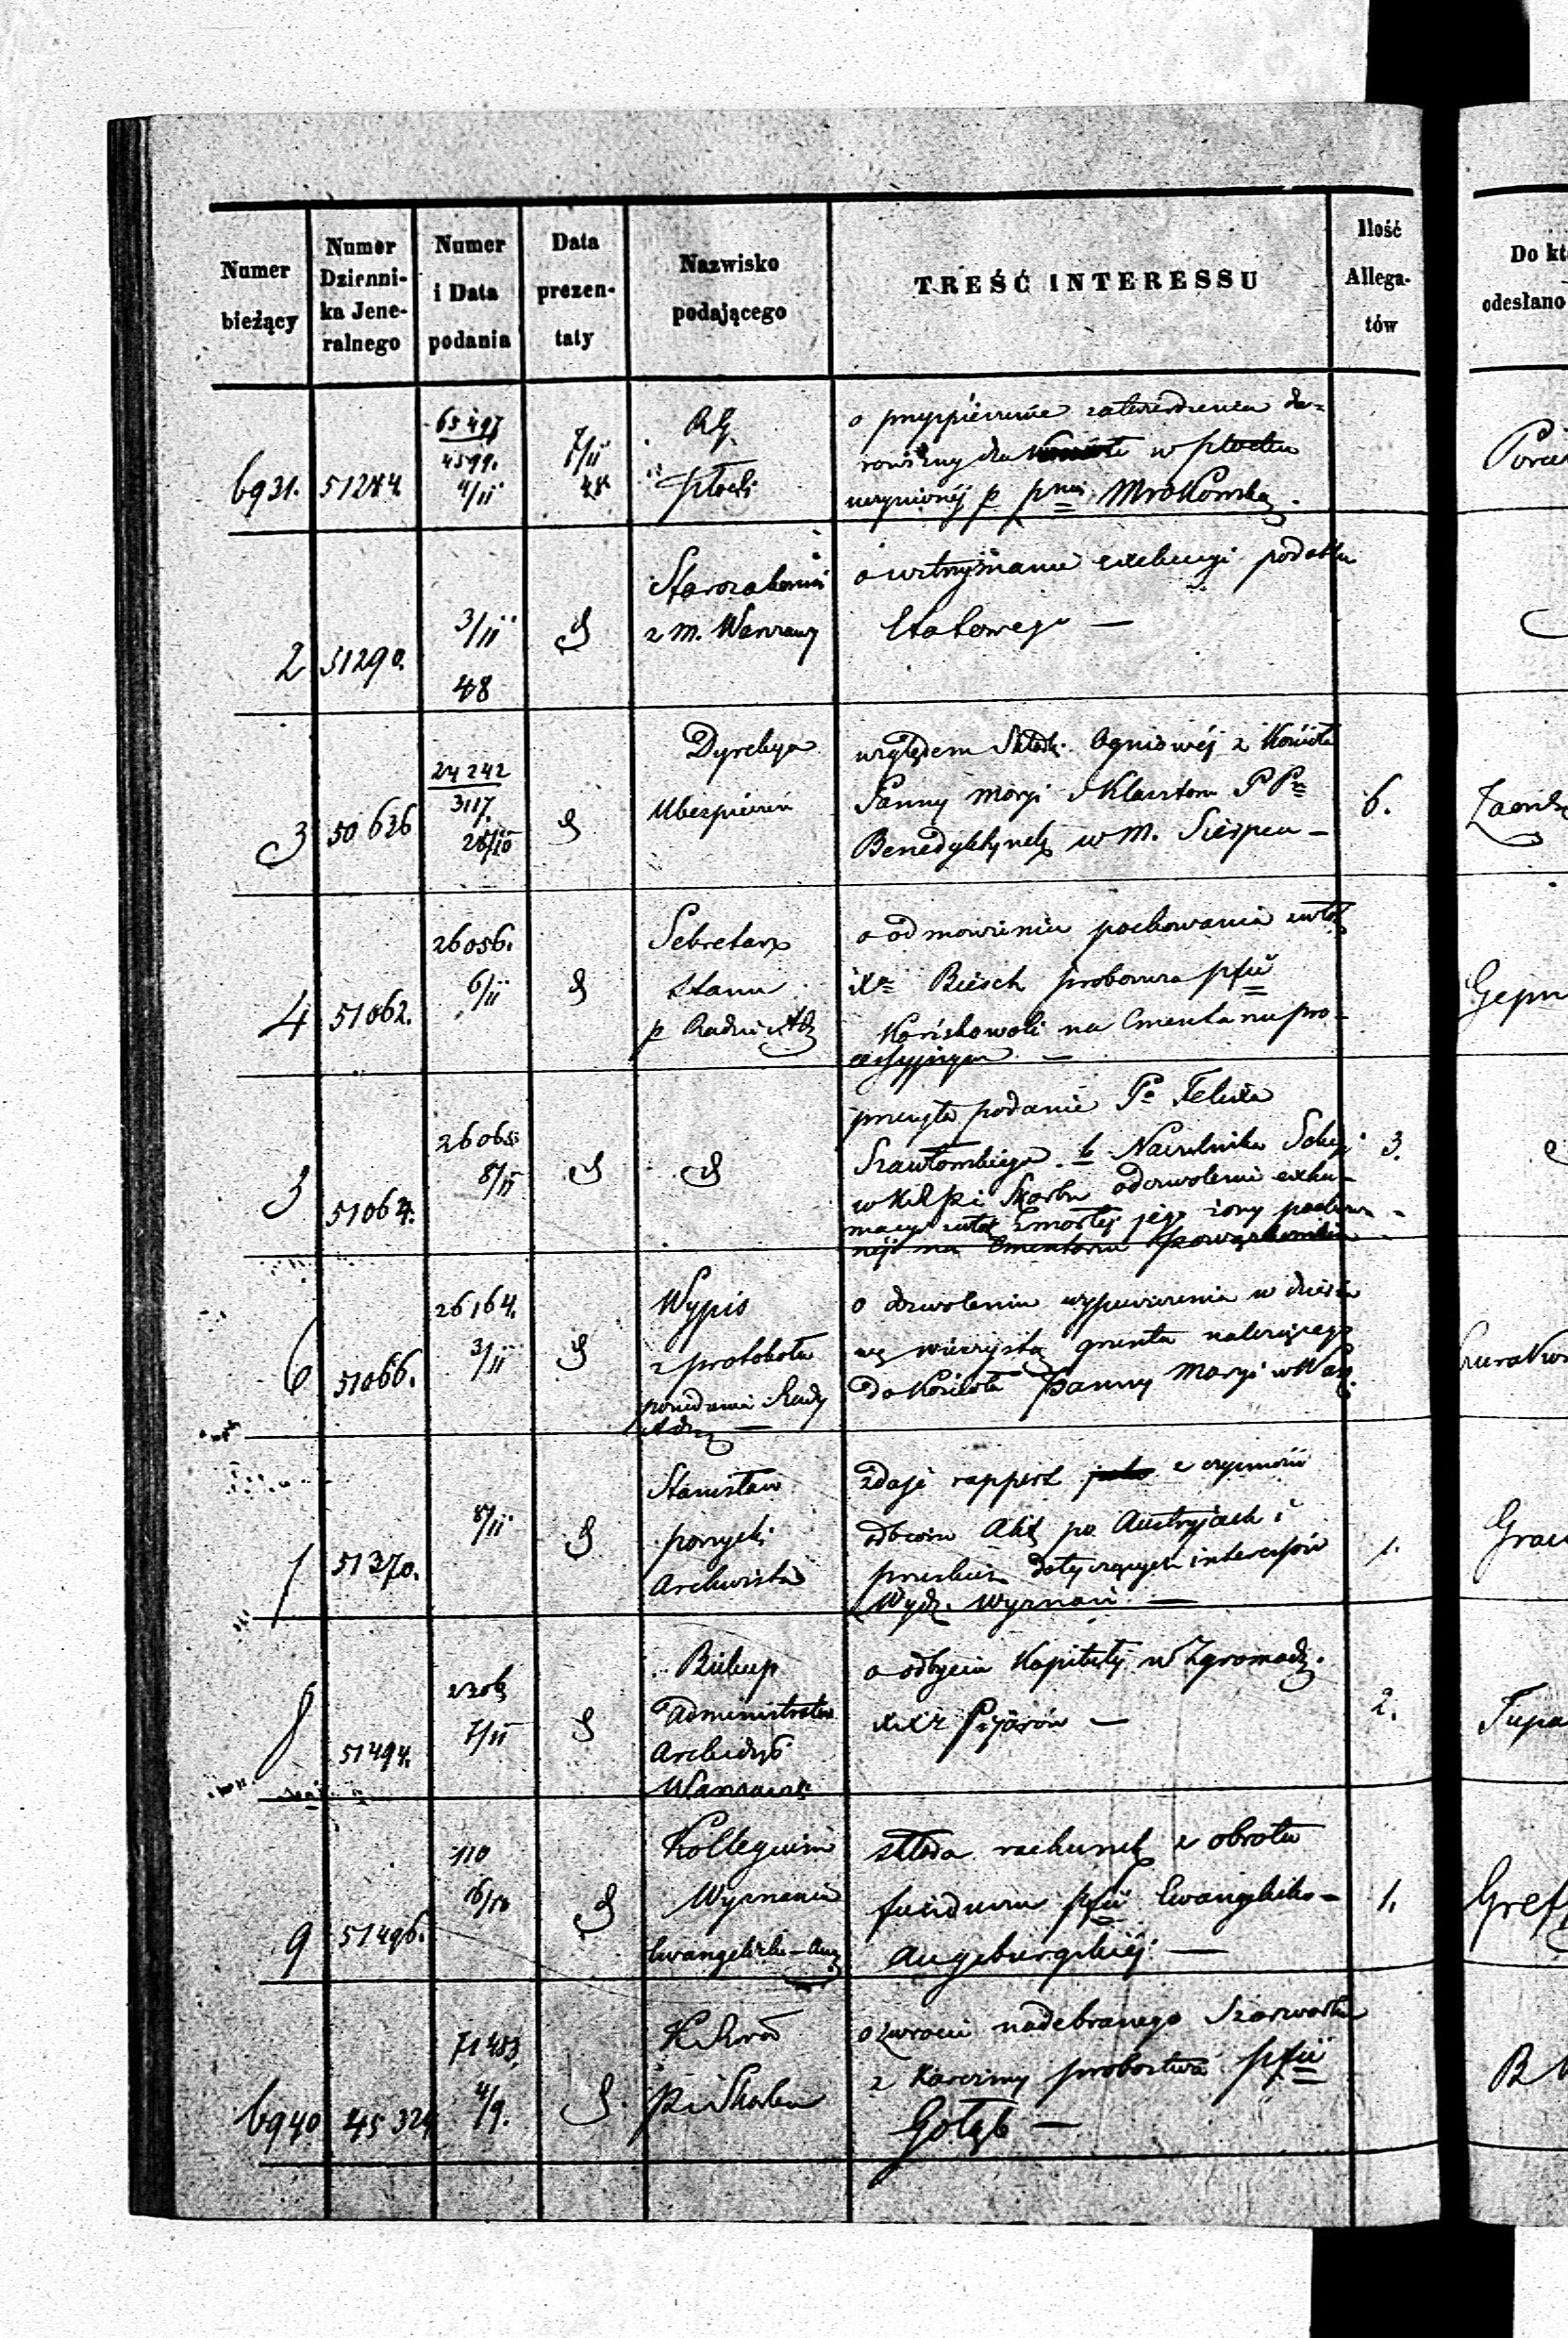 Numer bieżący
Numer Dziennika Jeneralnego
Numer i Data podania
Data prezentaty
Nazwisko podającego
TREŚĆ INTERESSU
Ilość Allegatów
Do kt
odesłano
6931. 51284. 4599. 4/11 7/11 48 RG.
Płocki
o przyspieszenie zatwierdzenia da-
rowizny dla w Płocku
uczynionéj p. Mrokowską.
2 51290. 3/11 48
Starozakonni
z m. Warszawy
o wstrzymanie exekucyi podatku
3 50626 24242 3117.
Dyrekcya
Ubezpieczeń
względem Składki Ogniowéj z Kościoła
Panny Maryi i Klasztoru PPn
Benedyktynek w m. Sierpcu —
6.
4 51062. 26056. 6/11
Sekretarz
Stanu
p Radzie Adm
o odmówieniu pochowania zwłok
Xa Biesch proboszcza pfii
Końskowoli na Cmentarzu pro-
cessyjnym —
Gepn
51064. 8/11
przesyła podanie Pa Felixa
b. Naczelnika Sekcyi
w KRPi Skarbu o dozwolenie exhu-
macyi zwłok zmarłej jego żony pochowa-
néj na Cmentarzu Powązkowskim
3.
6 51066. 26164. 3/11
Wypis
z protokołu
posiedzenia Rady
Adm —
o dozwoleniu wypuszczenia w dzierża
wę wieczystą gruntu należącego
do Kościoła Panny Maryi w War.
51370. 8/11
Stanisław
Archiwista
zdaje rapport z czynności
odbioru Akt po Austryjach i
pruskich dotyczących interessów
Wydz. Wyznań —
1.
8 51494. 7/11
Biskup
Administrator
Archidyec
Warszawski
o odbyciu Kapituły w Zgromadz.
XXx Pijarów —
2.
9 51496. 110
Kollegium
Wyznania
Ewangelicko-Aug
składa rachunek z obrotu
funduszu pfii Ewangelicko-
Augsburgskiéj —
1.
6940 71483, 4/9.
P i Skarbu
o zwrocie nadebranego Szarwarku
z Karczmy probostwa pfii
Gołąb —